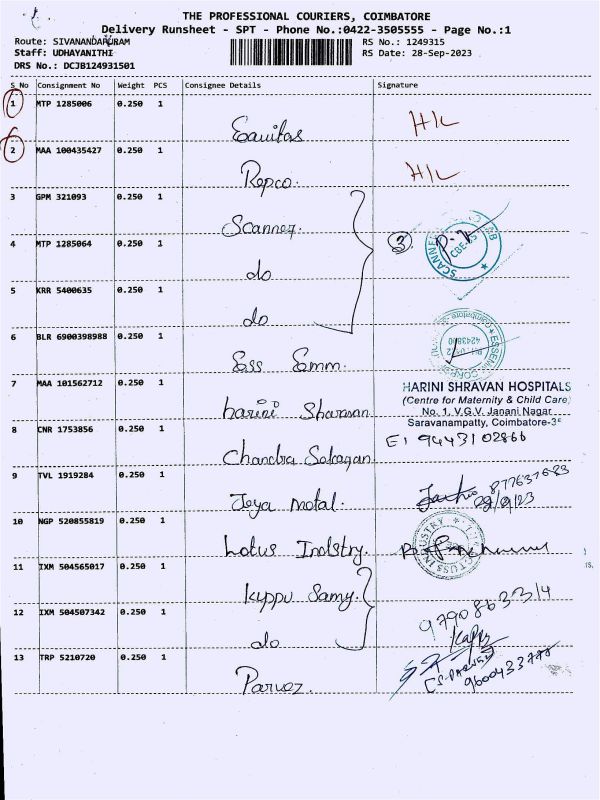 THE PROFESSIONAL COURIERS, COIMBATORE
Delivery Runsheet - SPT - Phone No.:0422-3505555 - Page No.:1
Route: SIVANANDAPURAM
Staff: UDHAYANITHI
DRS No.: DCJB124931501
RS No.: 1249315
RS Date: 28-Sep-2023
S No Consignment No Weight PCS Consignee Details Signature
1 MTP 1285006 0.250 1
Equitas H/L
2 MAA 100435427 0.250 1
Repco. H/L
3 GPM 321093 0.250 1
Scanner. 3
4 MTP 1285064 0.250 1
do
5 KRR 5400635 0.250 1
do
6 BLR 6900398988 0.250 1
Ess Emm.
7 MAA 101562712 0.250 1
harini Sharavan
HARINI SHRAVAN HOSPITALS
(Centre for Maternity & Child Care)
No. 1, V.G.V. Janani Nagar
Saravanampatty, Coimbatore-35
8 CNR 1753856 0.250 1
Chandra
9443102866
9 TVL 1919284 0.250 1
Jeya Metal.
28/9/23
10 NGP 520855819 0.250 1
Lotus Indstry.
11 IXM 504565017 0.250 1
Kuppu Samy.
12 IXM 504507342 0.250 1
do
13 TRP 5210720 0.250 1
Parvez.